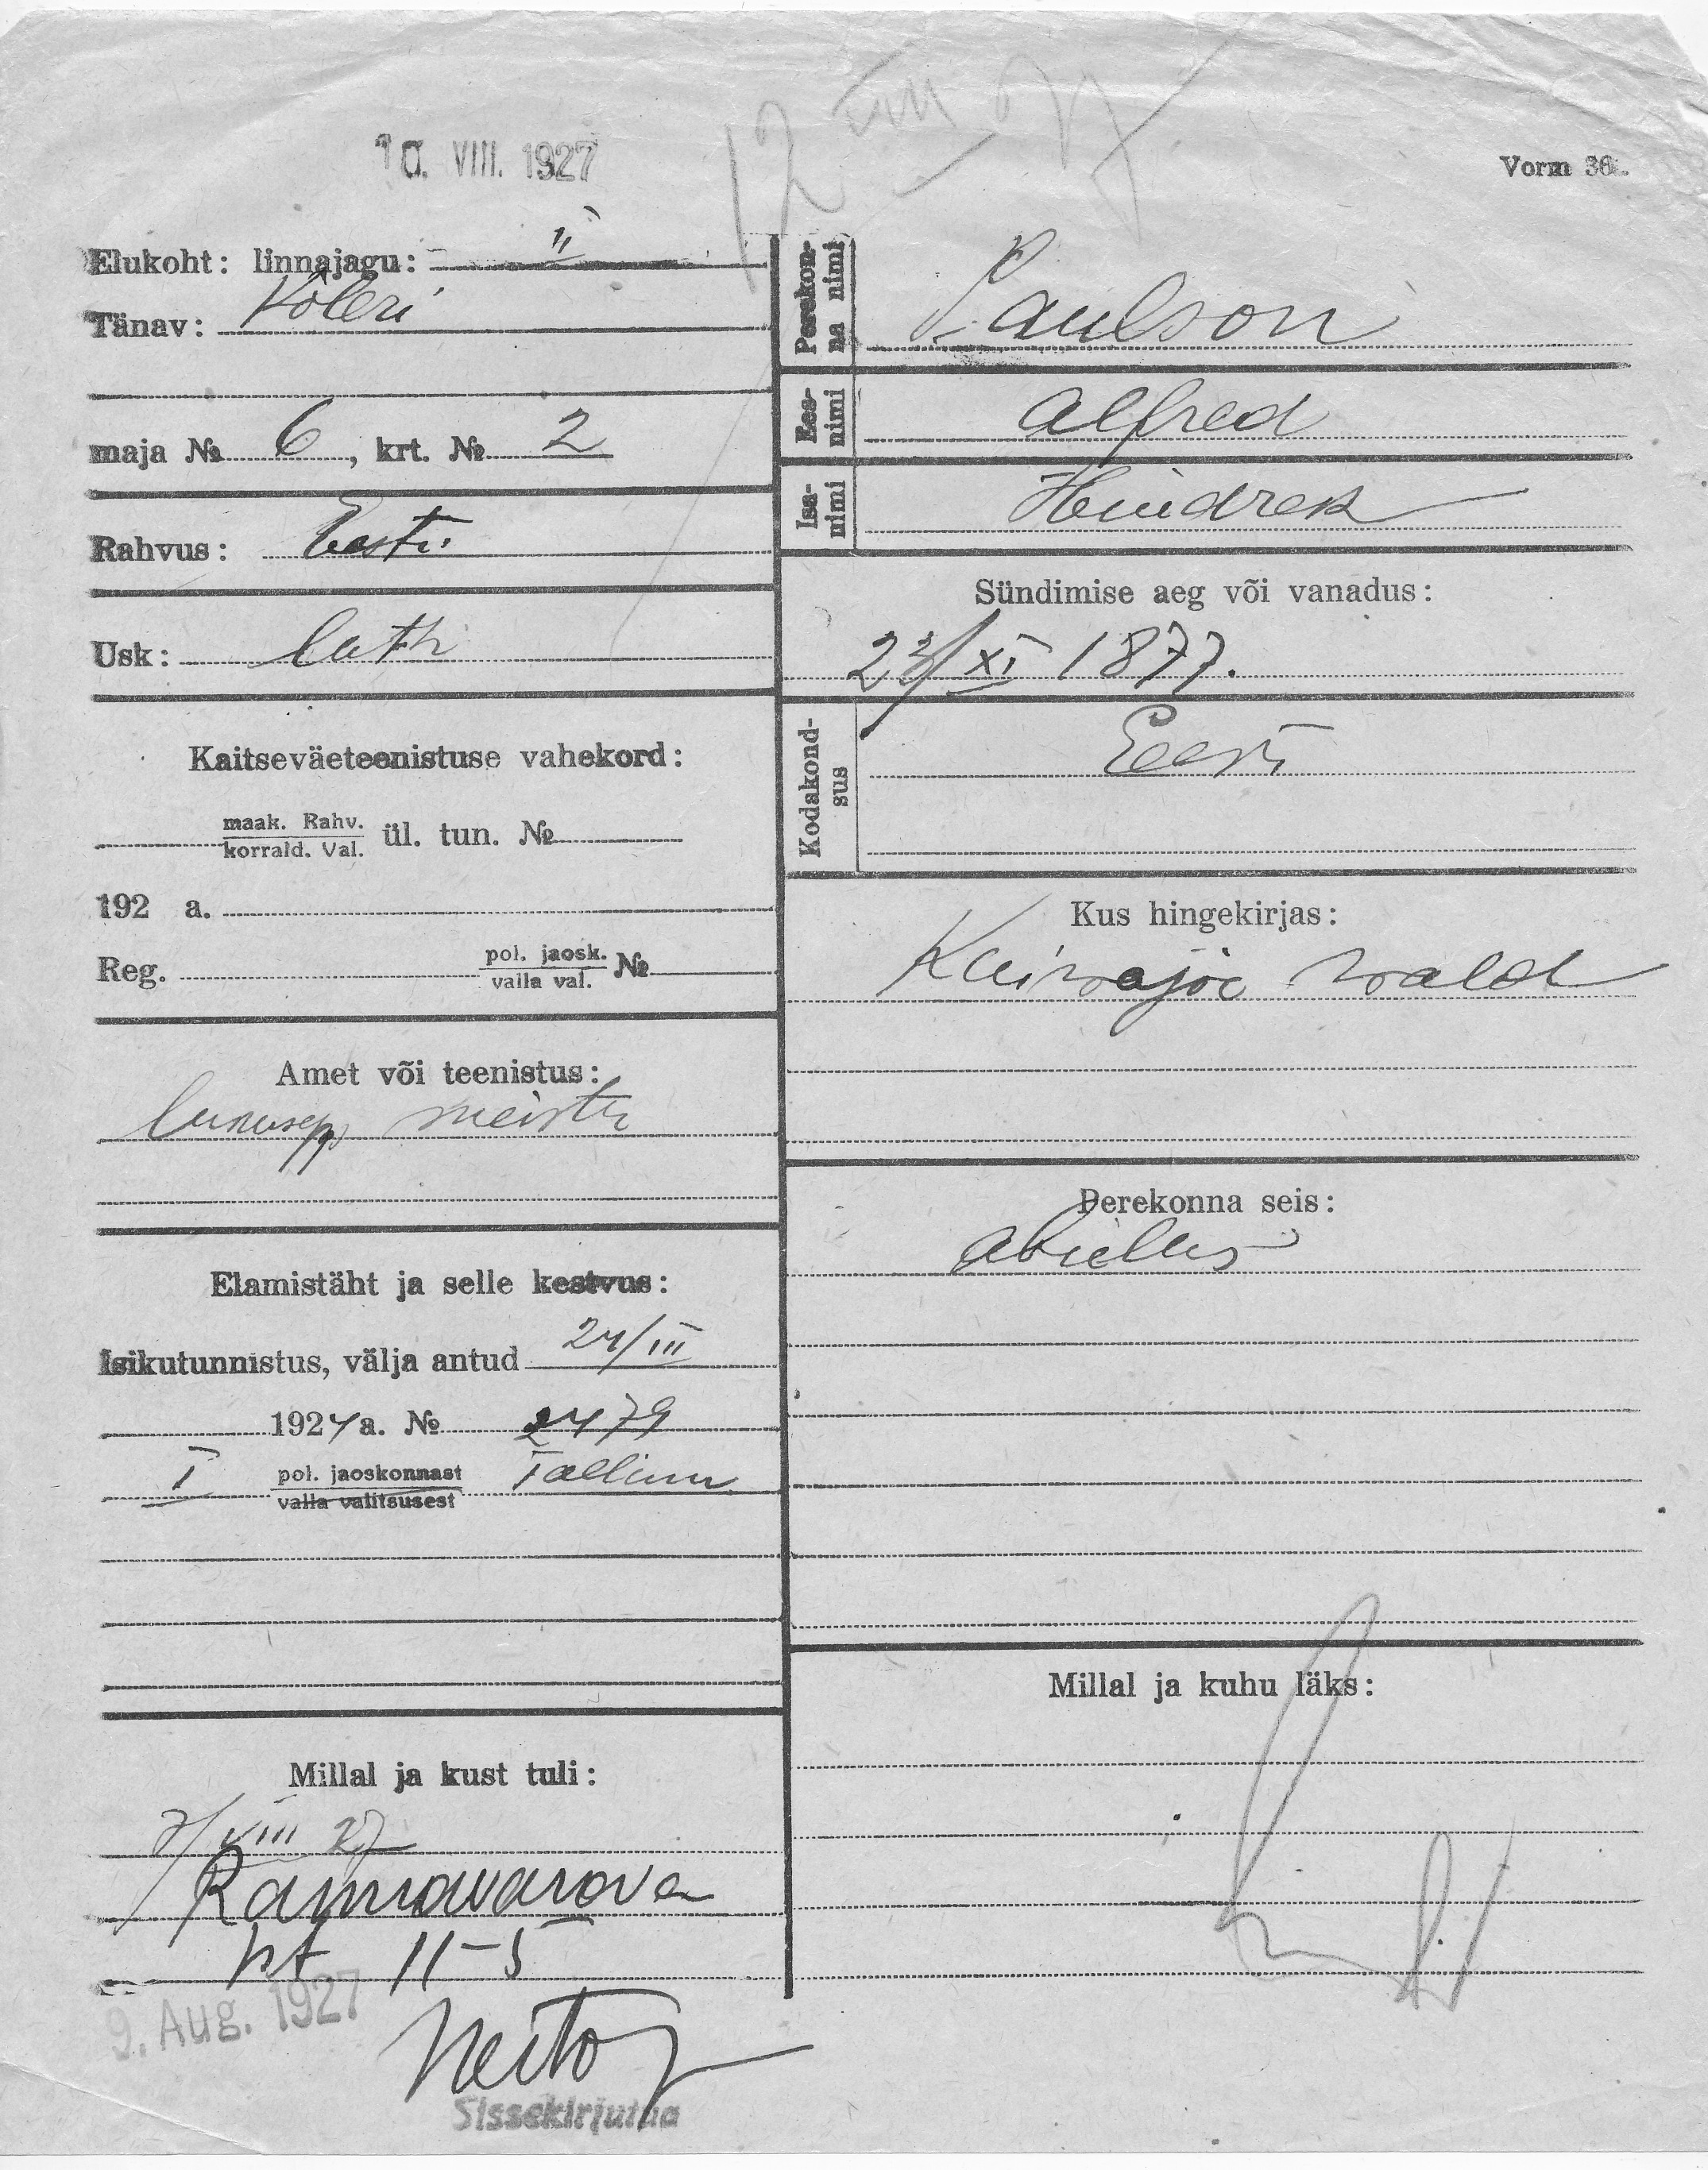 10. VIII. 1927
12 VIII 27
Vorm 36.
Elukoht: linnajagu: II
Tänav: Köleri
maja № 6, krt. № 2
Rahvus: Eesti
Usk: luth
Kaitseväeteenistuse vahekord:
maak. Rahv.
korrald. Val. ül. tun. №
192 a.
Reg. pol. jaosk.
valla val. №
Amet või teenistus:
lukusepp meister
Elamistäht ja selle kestvus:
Isikutunnistus, välja antud 24/III
1924 a. № 2479
I pol. jaoskonnast Tallinn
valla valitsusest
Millal ja kust tuli:
7/VIII 27
krt 11-5
9. Aug. 1927
Sissekirjutud
Perekon-
na nimi
Paulson
Ees-
nimi
Alfred
Isa-
nimi
Hindrek
Sündimise aeg või vanadus:
23/XI 1877.
Kodakond-
sus
Eesti
Kus hingekirjas:
Kuivajõe wald
Perekonna seis:
abielus
Millal ja kuhu läks: